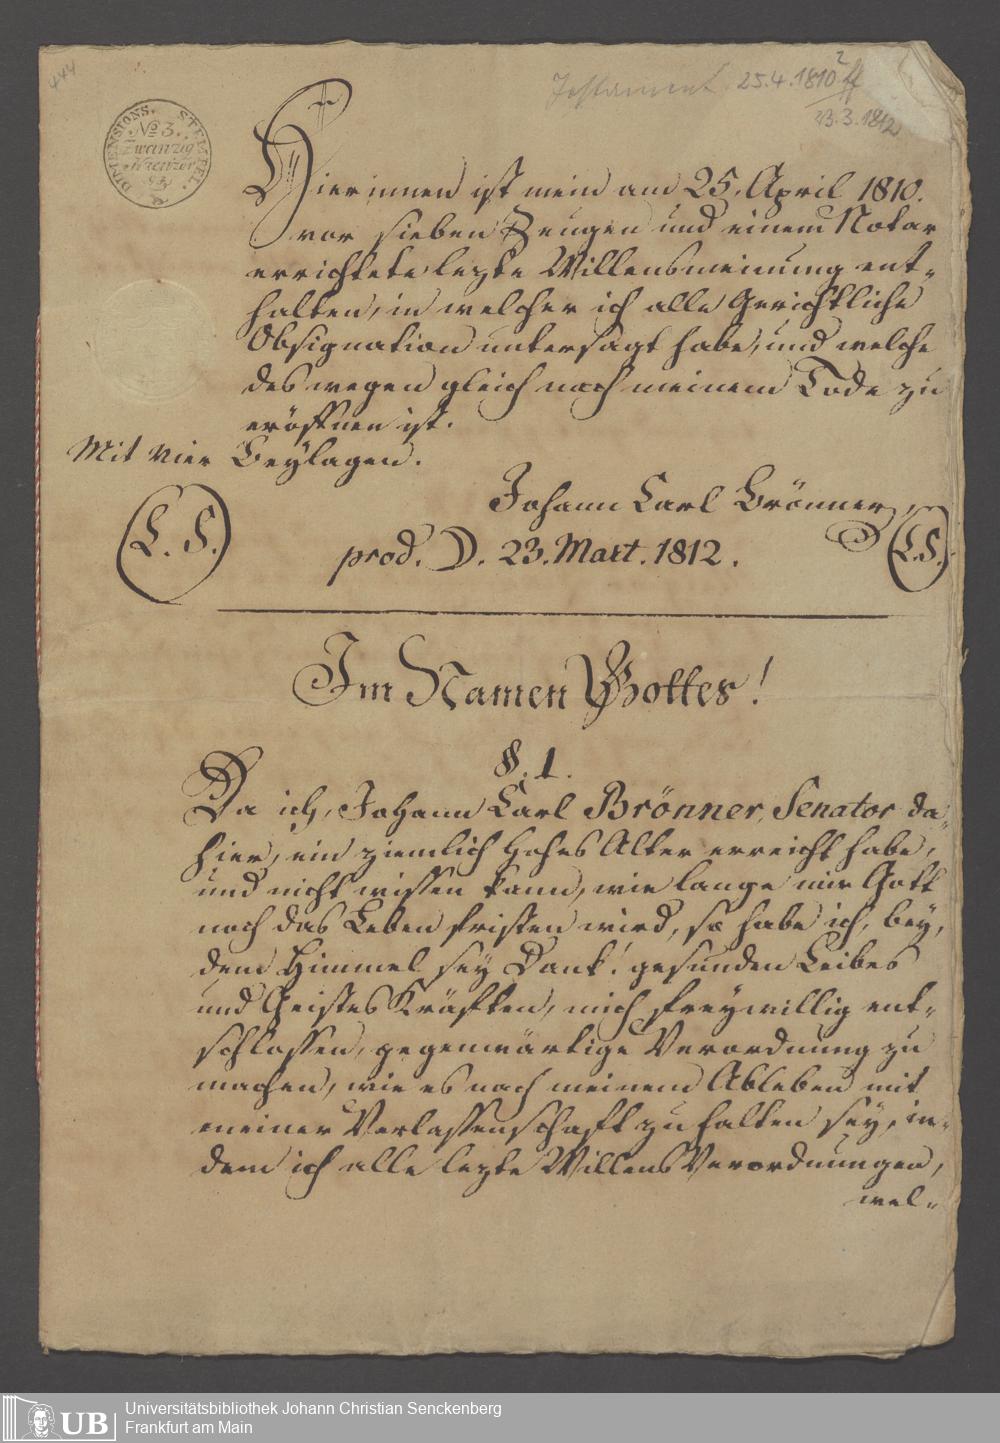 444
Testament 25.4.1810
23.3.1812
DIMENSIONS. STEMPEL.
No 3.
Zwanzig
Kreuzer
Hierinnen ist mein am 25. April 1810.
vor sieben Zeugen und einem Notar
errichtete lezte Willensmeinung ent-
halten, in welcher ich alle Gerichtliche
Obsignation untersagt habe, und welche
des wegen gleich nach meinem Tode zu
eröffnen ist.
Mit vier Beylagen.
Johann Carl Brönner,
(L. S.) prod. D. 23. Mart. 1812. (L.S.)
Im Namen Gottes!
§. 1.
Da ich, Johann Carl Brönner, Senator da-
hier, ein ziemlich hohes Alter erreicht habe,
und nicht wissen kann, wie lange mir Gott
noch das Leben fristen wird, so habe ich, bey,
dem Himmel sey Dank! gesunden Leibes
und Geistes Kräften, mich freywillig ent-
schlossen, gegenwärtige Verordnung zu
machen, wie es nach meinem Ableben mit
meiner Verlassenschaft zu halten sey, in-
dem ich alle lezte Willens Verordnungen,
wel-
UB
Universitätsbibliothek Johann Christian Senckenberg
Frankfurt am Main